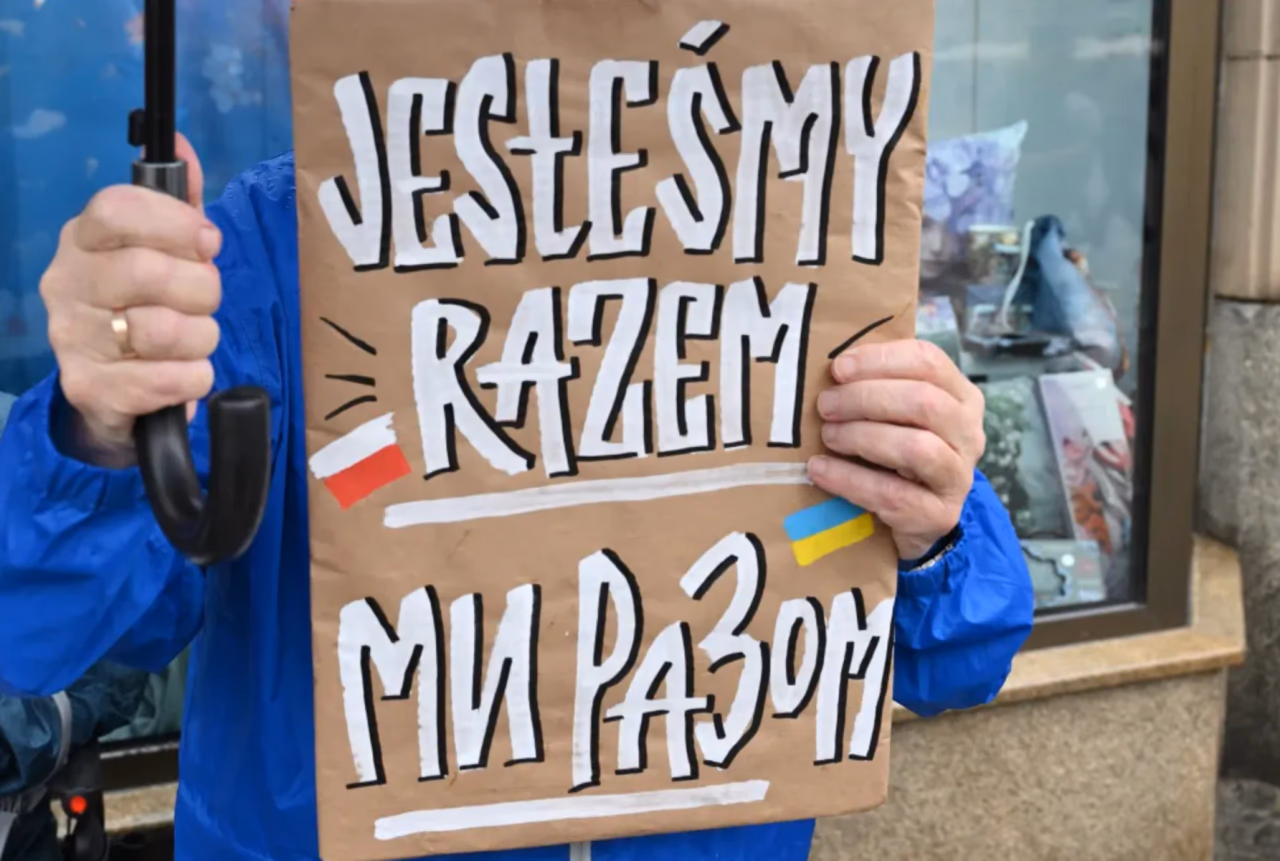 JESTEŚMY
RAZEM
МИ РАЗОМ